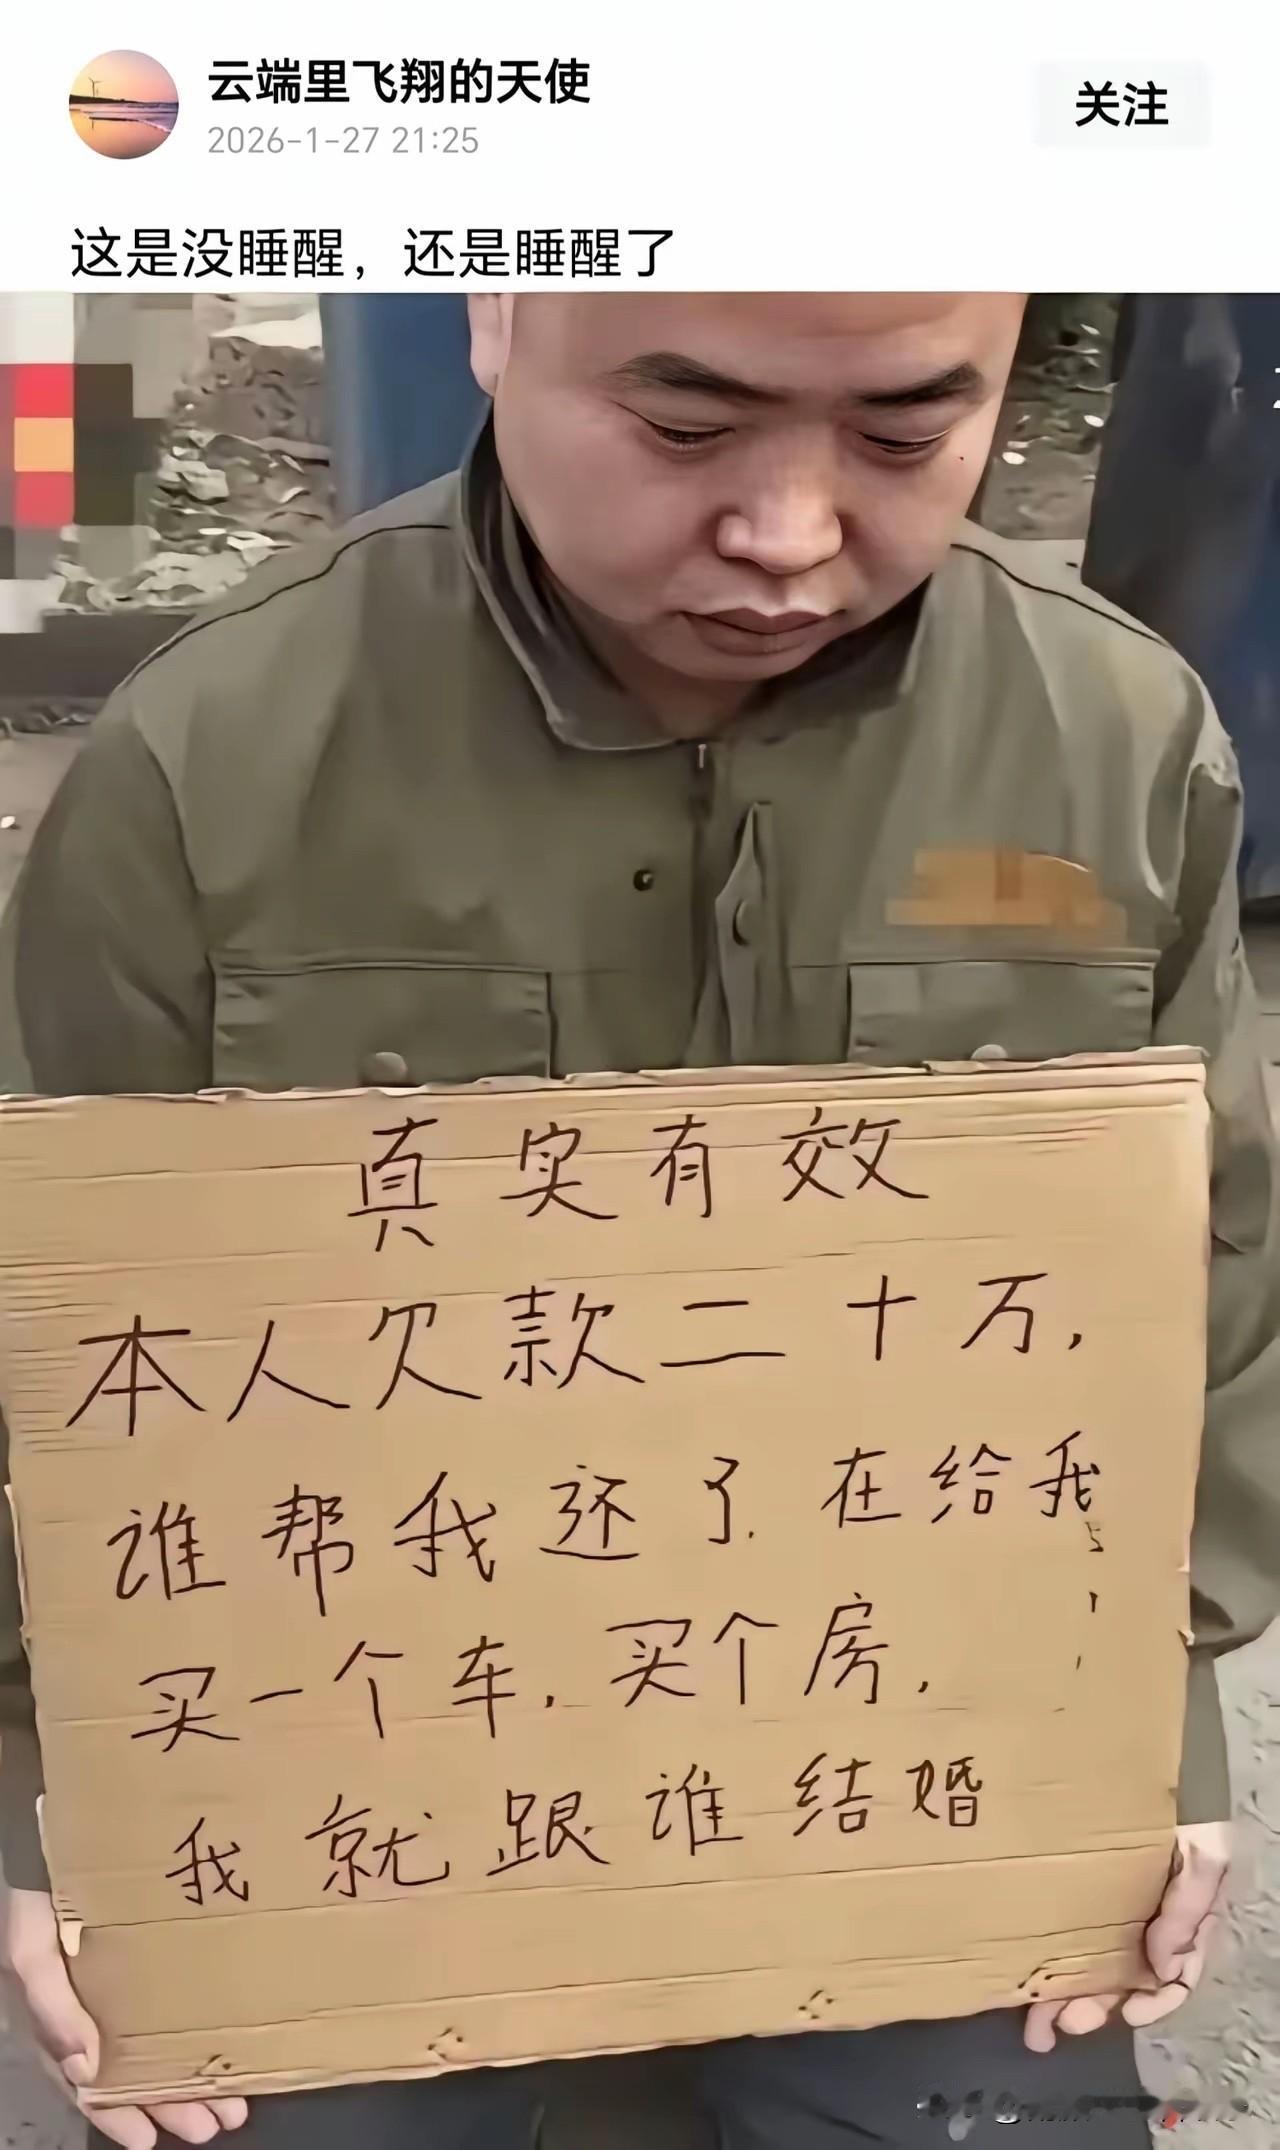 云端里飞翔的天使
2026-1-27 21:25
关注
这是没睡醒，还是睡醒了
真实有效
本人欠款二十万，
谁帮我还了.在给我
买一个车.买个房.
我就跟谁结婚